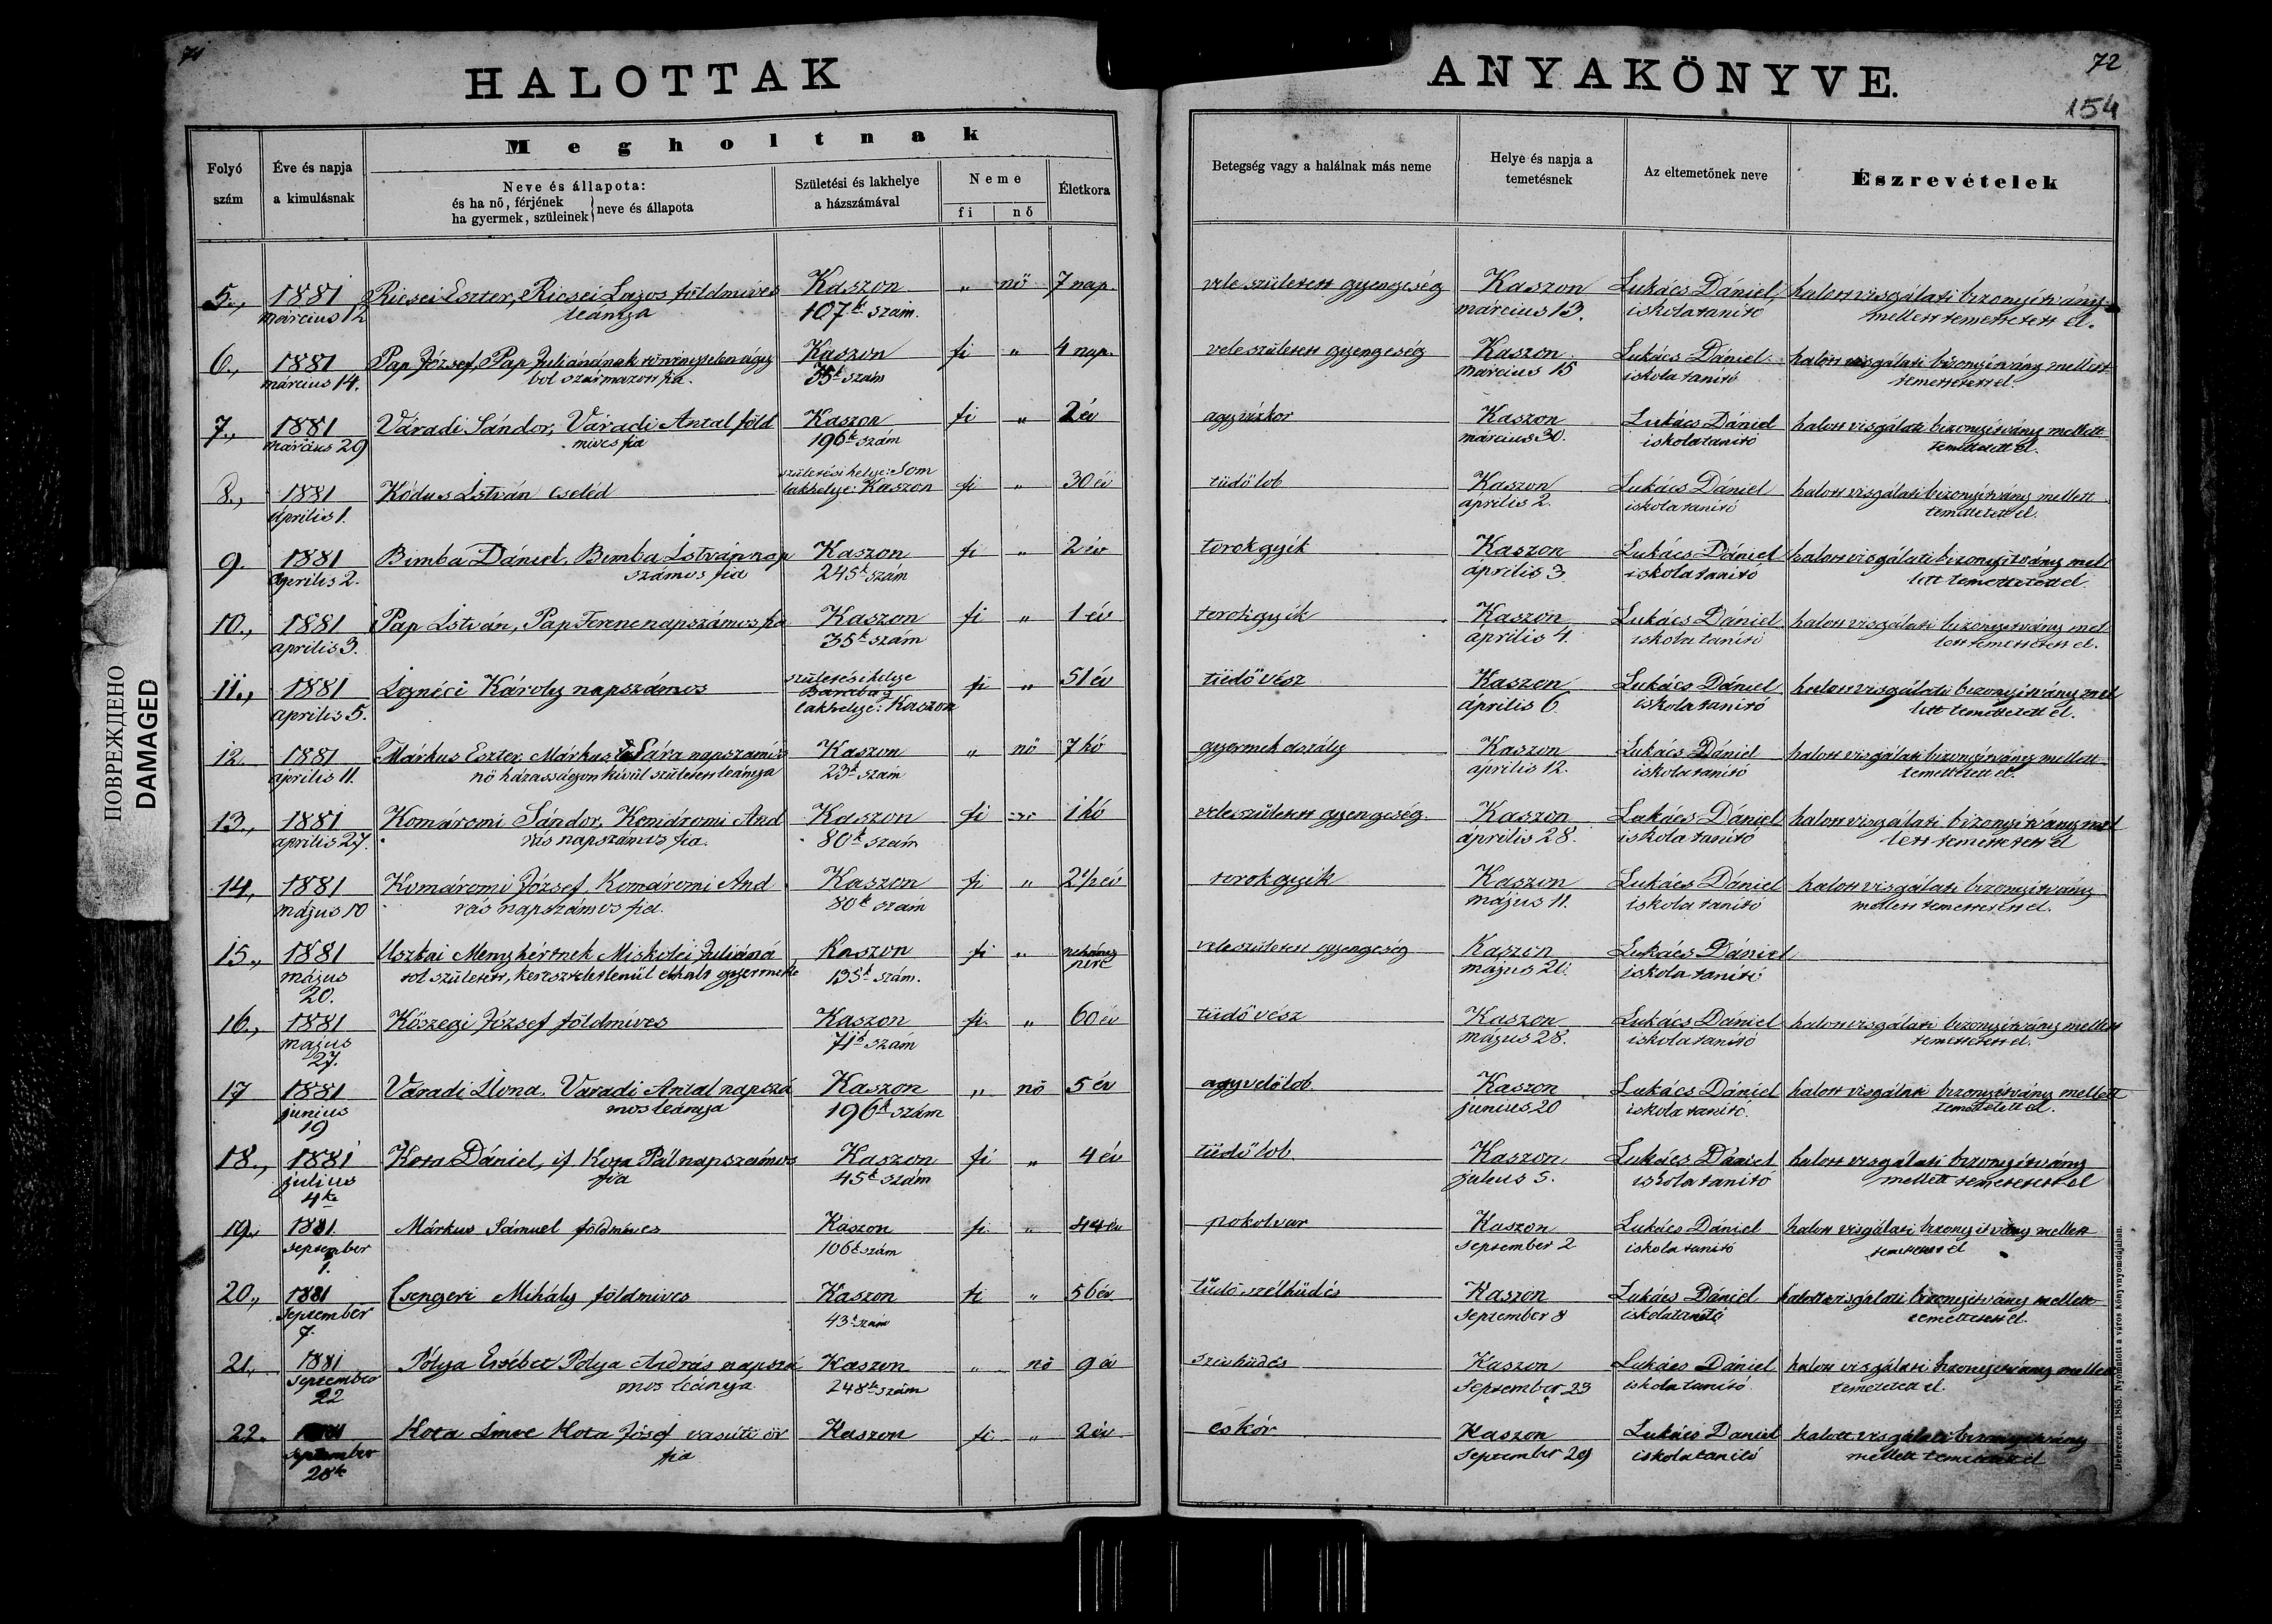 71
HALOTTAK
Megholtnak
Folyó szám
Éve és napja a kimulásnak
Neve és állapota:
és ha nő, férjének
ha gyermek, szüleinek } neve és állapota
Születési és lakhelye a házszámával
Neme
fi
nő
Életkora
5., 1881 Ricsei Eszter, Ricsei Lajos földmíves Kaszon " nő 7 nap.
március 12 leánya 107k szám.
6., 1881 Pap József, Pap Juliánának törvénytelen ágy Kaszon fi " 4 nap.
március 14. ból származott fia. 35k szám
7., 1881 Váradi Sándor, Váradi Antal föld Kaszon fi " 2 év
március 29 mives fia 196k szám
8., 1881 Kódus István cseléd születési helye: Som fi " 30 év
április 1. lakhelye: Kaszon
9. 1881 Bimba Dániel, Bimba István nap Kaszon fi " 2 év
április 2. számos fia 245k szám
10., 1881 Pap István, Pap Ferenc napszámos fia Kaszon fi " 1 év
április 3. 35k szám
11., 1881 Károly napszámos születési helye fi " 51 év
április 5. lakhelye: Kaszon
12. 1881 Márkus Eszter Márkus Sára napszámos Kaszon " nő 7 hó
április 11. nő házasságon kivül született leánya 23k szám
13., 1881 Komáromi Sándor, Komáromi And Kaszon fi " 1 hó
április 27. rás napszámos fia. 80k szám
14, 1881 Komáromi József, Komáromi And Kaszon fi " 2 1/2 év
május 10 rás napszámos fia. 80k szám
15., 1881 Uszkai Menyhértnek Miskolci Juliáná Kaszon fi " néhány
május 20. tol született, kereszteletlenül elhalt gyermeke 135k szám. perc
16., 1881 Kőszegi József földmíves Kaszon fi. " 60 év
május 27. 71k szám
17 1881 Váradi Ilona, Váradi Antal napszá Kaszon " nő 5 év
junius 19 mos leánya 196k szám
18., 1881 Kota Dániel, if Kota Pál napszámos Kaszon fi " 4 év
július 4ke fia 45k szám
19., 1881. Márkus Sámuel földmíves Kaszon fi " 44 év
september 1. 106k szám
20., 1881 Csengeri Mihály földmives Kaszon fi " 56 év
september 7. 43k szám
21., 1881 Pólya Erzsébet Pólya András napszá Kaszon " nő
september 22 mos leánya 248k szám
22. Kota Imre Kota Jósef vasúti őr Kaszon fi " 2 év
september 28k fia
ANYAKÖNYVE.
72
154
Betegség vagy a halálnak más neme
Helye és napja a temetésnek
Az eltemetőnek neve
Észrevételek
vele született gyengeség Kaszon Lukács Dániel, halott visgálati bizonyítvány
március 13. iskolatanító mellett temettetett el.
vele született gyengeség Kaszon Lukács Dániel halott visgálati bizonyítvány mellett
március 15 iskola tanító temettetett el.
agyvízkor Kaszon Lukács Dániel halott visgálati bizonyítvány mellett
március 30. iskolatanító temettetett el.
tüdő lob Kaszon Lukács Dániel halott visgálati bizonyítvány mellett
április 2. iskolatanító temettetett el.
torokgyík Kaszon Lukács Dániel halott visgálati bizonyítvány mel
április 3 iskolatanító lett temettetett el
torokgyík Kaszon Lukács Dániel halott visgálati bizonyítvány mel
április 4. iskola tanító lett temettetett el.
tüdő vész Kaszon Lukács Dániel halott visgálati bizonyítvány mel
április 6 iskolatanító lett temettetett el.
gyermek aszály Kaszon Lukács Dániel halott visgálati bizonyítvány mellett
április 12. iskolatanító temettetett el.
veleszületett gyengeség. Kaszon Lukács Dániel halott visgálati bizonyítvány mel
április 28. iskola tanító lett temettetett el
torokgyík Kaszon Lukács Dániel halott visgálati bizonyítvány
május 11. iskola tanító mellett temettetett el.
veleszületett gyengeség Kaszon Lukács Dániel
május 21. iskola tanító
tüdő vész Kaszon Lukács Dániel halott visgálati bizonyítvány mellett
május 28. iskolatanító temettetett el.
agyvelőlob Kaszon Lukács Dániel halott visgálati bizonyítvány mellett
junius 20 iskola tanító. temettetett el.
tüdő lob Kaszon Lukács Dániel halott visgálati bizonyítvány
július 5. iskola tanító mellett temettetett el
pokolvar Kaszon Lukács Dániel halott visgálati bizonyítvány mellett
september 2 iskola tanító
tüdő szélhüdés Kaszon Lukács Dániel halott visgálati bizonyítvány mellett
september 8 iskolatanító temettetett el.
szivhüdés Kaszon Lukács Dániel halott visgálati bizonyítvány mellett
september 23 iskolatanító
eskór Kaszon Lukács Dániel halott visgálati bizonyítvány
september 29 iskolatanító mellett temettetett el
Debreczen. 1865. Nyomatott a város könyvnyomdájában.
ПОВРЕЖДЕНО
DAMAGED